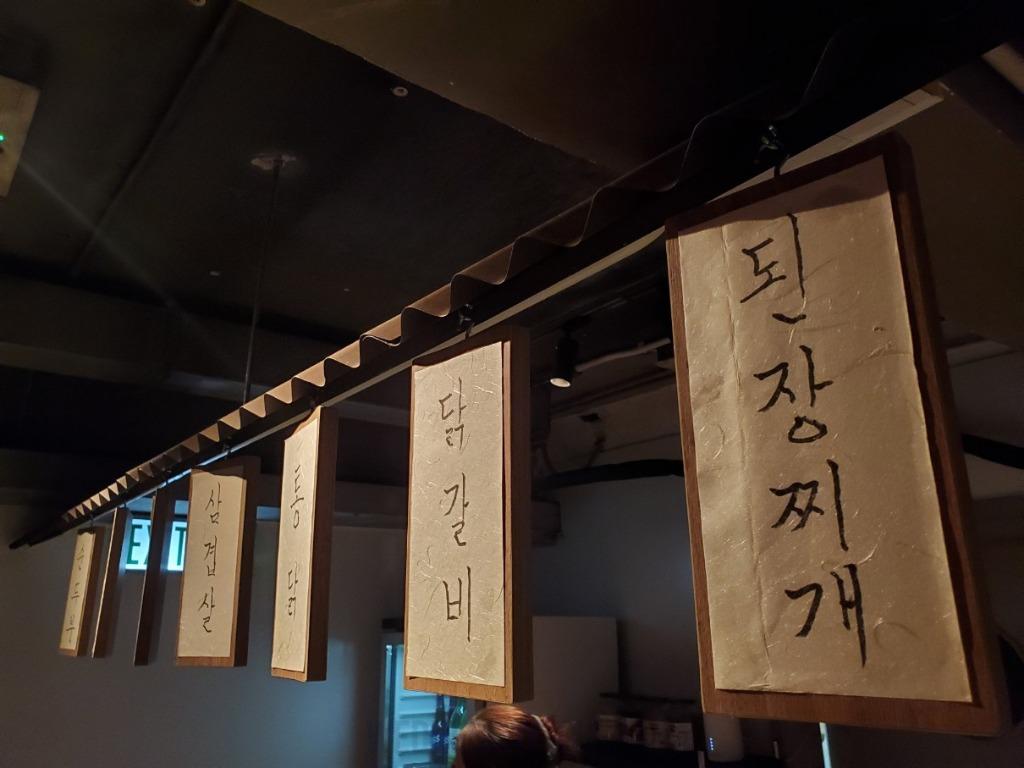 순두부
EXIT
삼겹살
통닭
닭갈비
된장찌개